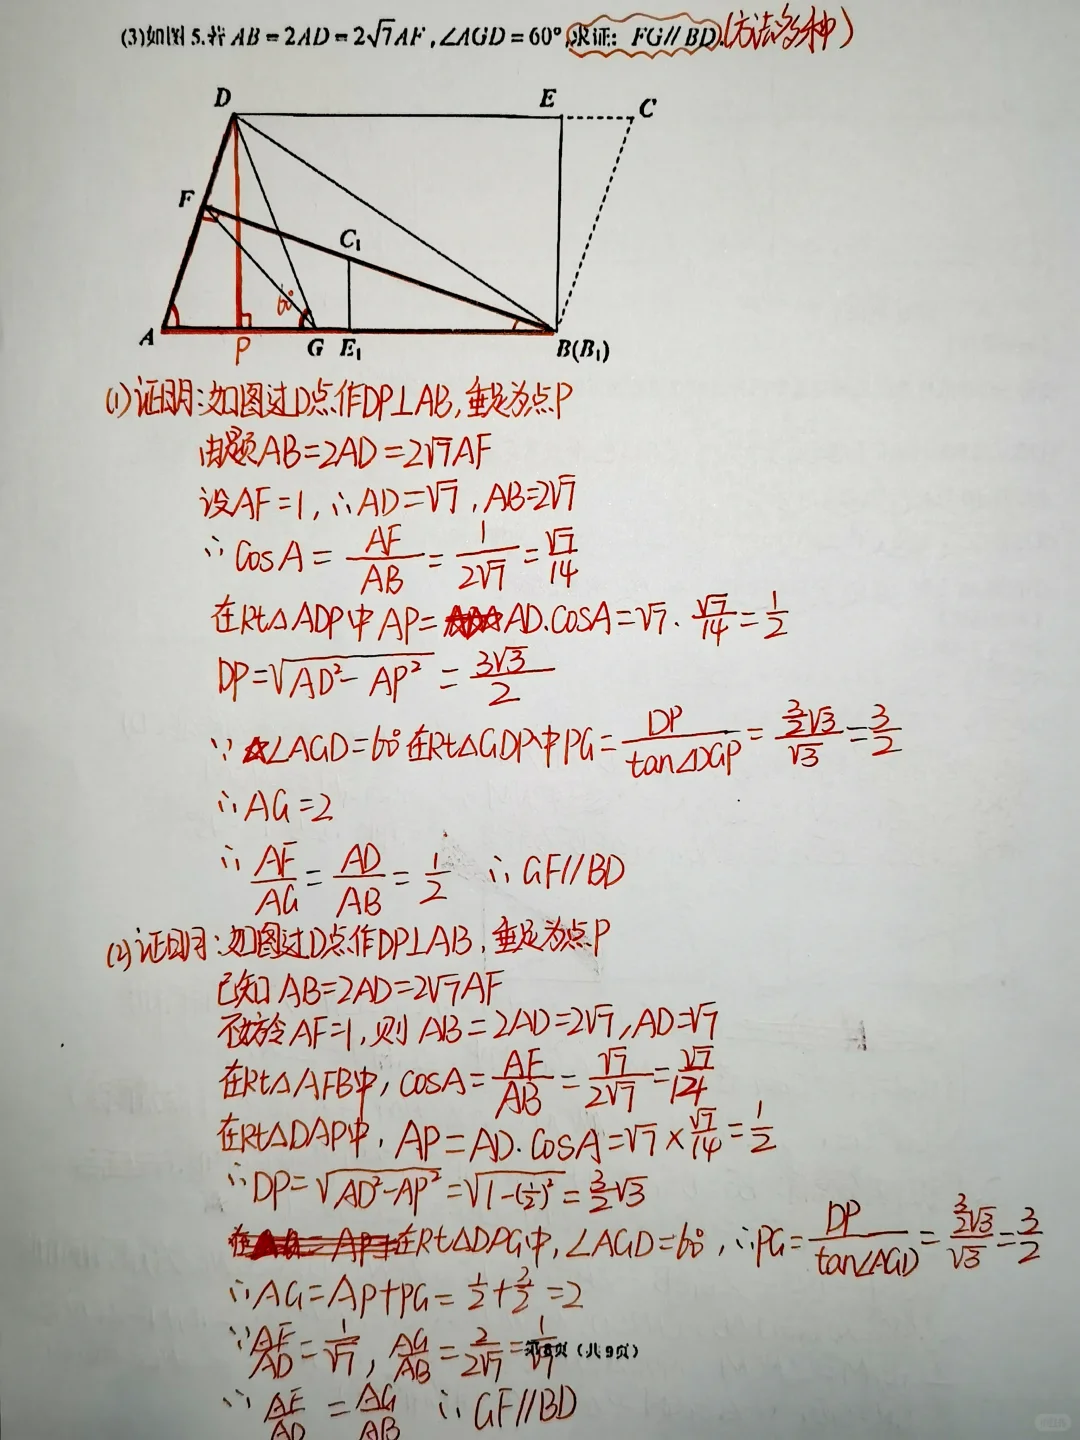 (3)如图 5.若 AB=2AD=2√7AF,∠AGD=60°,求证: FG∥BD.(方法多种)
D
E
C
F
C₁
60°
A
P
G
E₁
B(B₁)
(1)证明:如图过D点作DP⊥AB,垂足为点P
由题AB=2AD=2√7AF
设AF=1,∴AD=√7,AB=2√7
∴CosA=AF/AB=1/2√7=√7/14
在Rt△ADP中AP=AD.CosA=√7·√7/14=1/2
DP=√AD²-AP²=3√3/2
∵∠AGD=60°在Rt△GDP中PG=DP/tan∠DGP=3/2√3/√3=3/2
∴AG=2
∴AF/AG=AD/AB=1/2 ∴GF∥BD
(2)证明:如图过D点作DP⊥AB,垂足为点P
已知AB=2AD=2√7AF
不妨令AF=1,则AB=2AD=2√7,AD=√7
在Rt△AFB中,cosA=AF/AB=√7/2√7=√7/14
在Rt△DAP中,AP=AD.CosA=√7×√7/14=1/2
∴DP=√AD²-AP²=√1-(1/2)²=3/2√3
在Rt△DPG中,∠AGD=60°,∴PG=DP/tan∠AGD=3/2√3/√3=3/2
∴AG=AP+PG=1/2+3/2=2
∵AF/AD=1/√7,AG/AB=2/2√7=1/√7
页(共9页)
∴AF/AD=AG/AB ∴GF∥BD